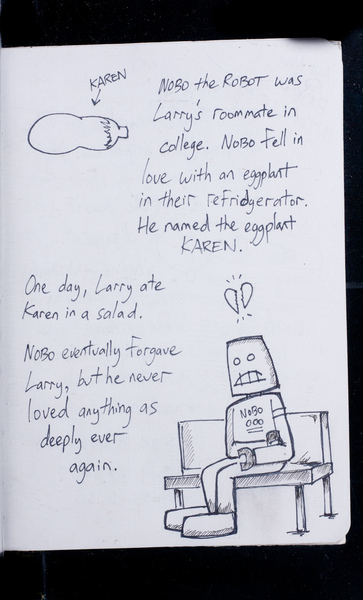 KAREN
NOBO the ROBOT was
Larry's roommate in
college. NOBO fell in
love with an eggplant
in their refridgerator.
He named the eggplant
KAREN.
One day, Larry ate
Karen in a salad.
NOBO eventually forgave
Larry, but he never
loved anything as
deeply ever
again.
NOBO